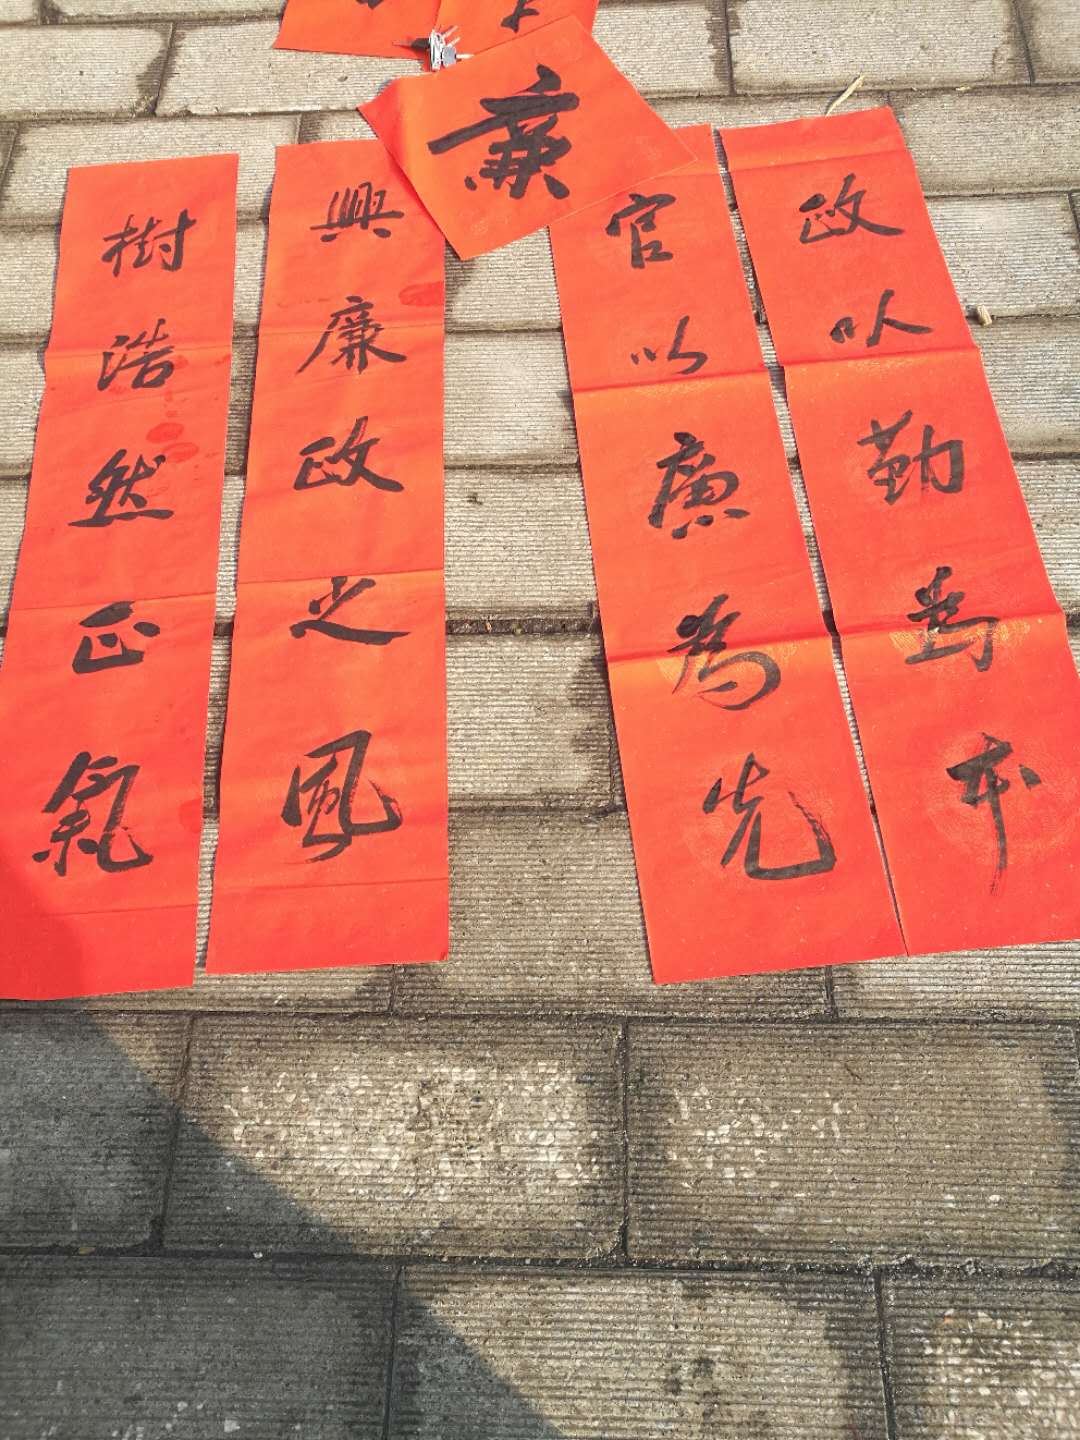 廉
政以勤為本
官以廉為先
興廉政之風
樹浩然正氣